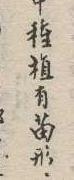 中種植有苗形